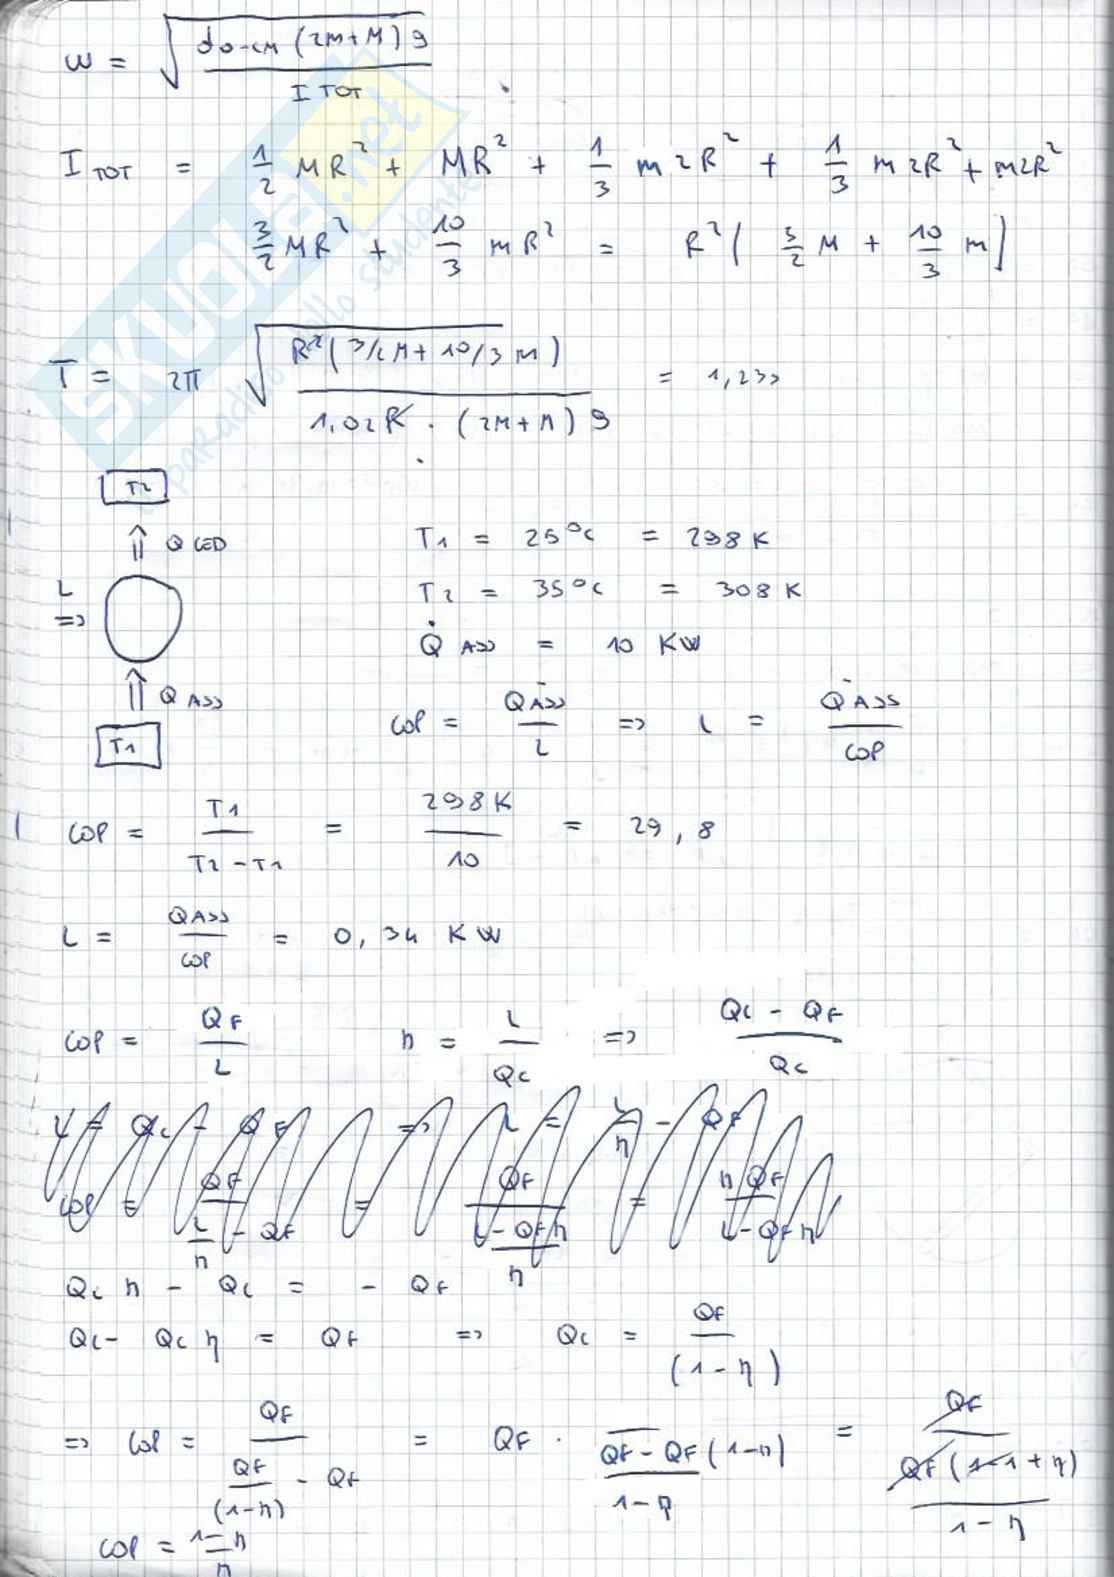 ω = √( d o-cM (2m+M) g / I TOT )
I TOT = 1/2 MR² + MR² + 1/3 m 2R² + 1/3 m 2R² + m2R²
3/2 MR² + 10/3 mR² = R² ( 3/2 M + 10/3 m )
T = 2π √( R² (3/2 M + 10/3 m) / 1,02R · (2m+M) g ) = 1,23s
T2
Q CED
L =>
Q ASS
T1
T1 = 25°C = 298 K
T2 = 35°C = 308 K
Q̇ ASS = 10 KW
COP = Q̇ASS / L => L = Q̇ASS / COP
COP = T1 / T2 - T1 = 298K / 10 = 29,8
L = QASS / COP = 0,34 KW
COP = QF / L η = L / QC => QC - QF / QC
L = QC - QF => L = L/η - QF
COP = QF / L/η - QF = QF / L - QFη / η = η QF / L - QF η
QC η - QC = - QF
QC - QC η = QF => QC = QF / (1 - η)
=> COP = QF / QF/(1-η) - QF = QF · 1 / QF - QF (1-η) / 1-η = QF / QF (1-1+η) / 1-η
COP = 1-η / η
SKUOLA.net
paradiso dello studente